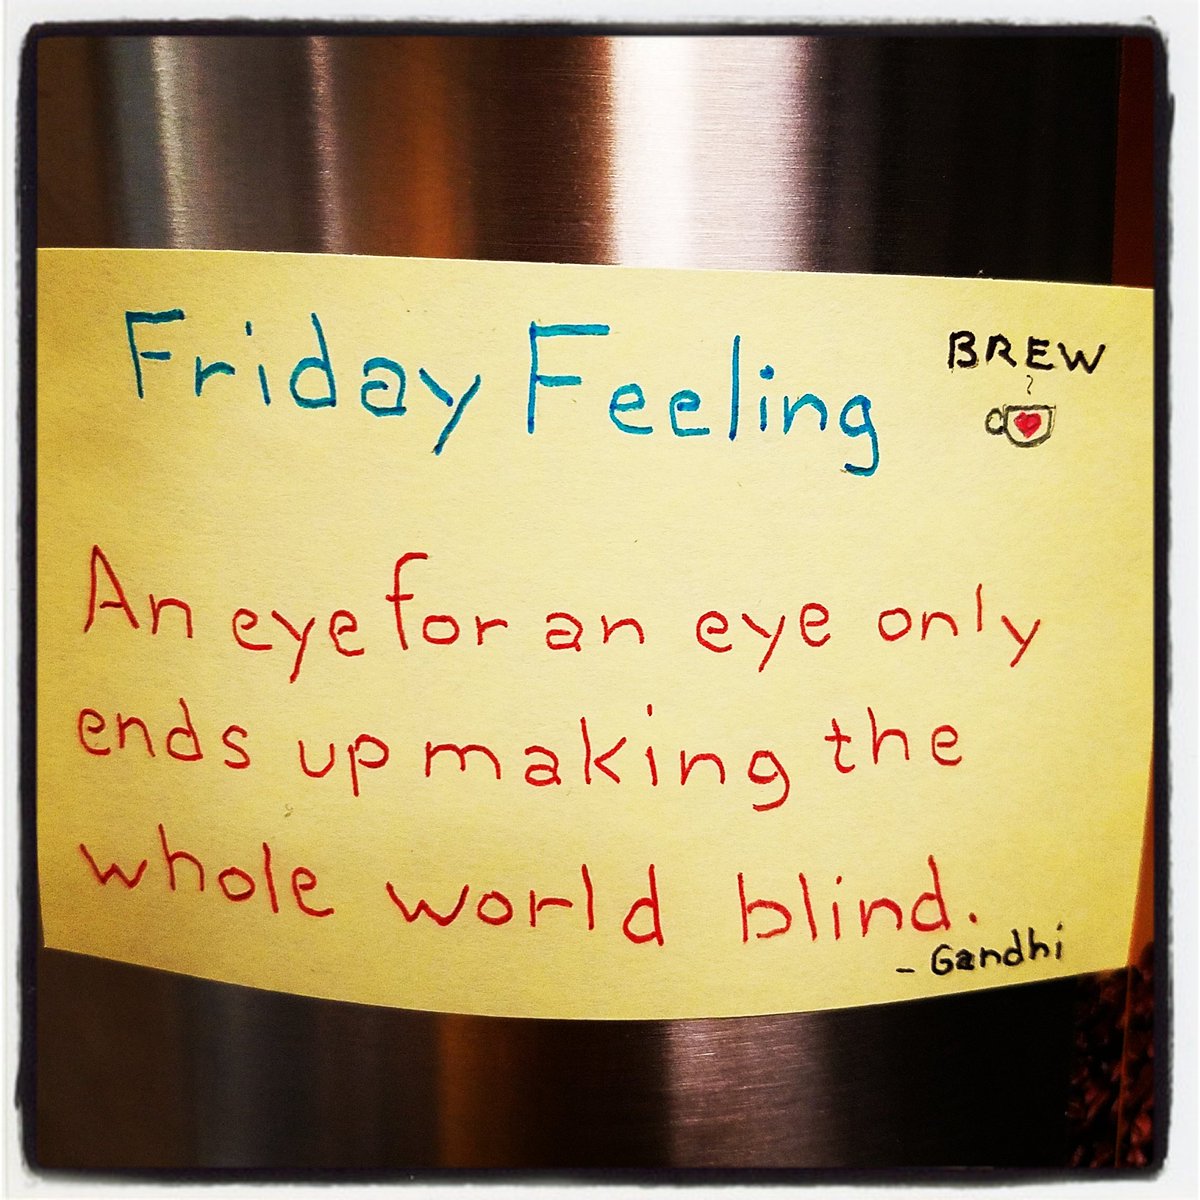 Friday Feeling
BREW
An eye for an eye only
ends up making the
whole world blind.
- Gandhi